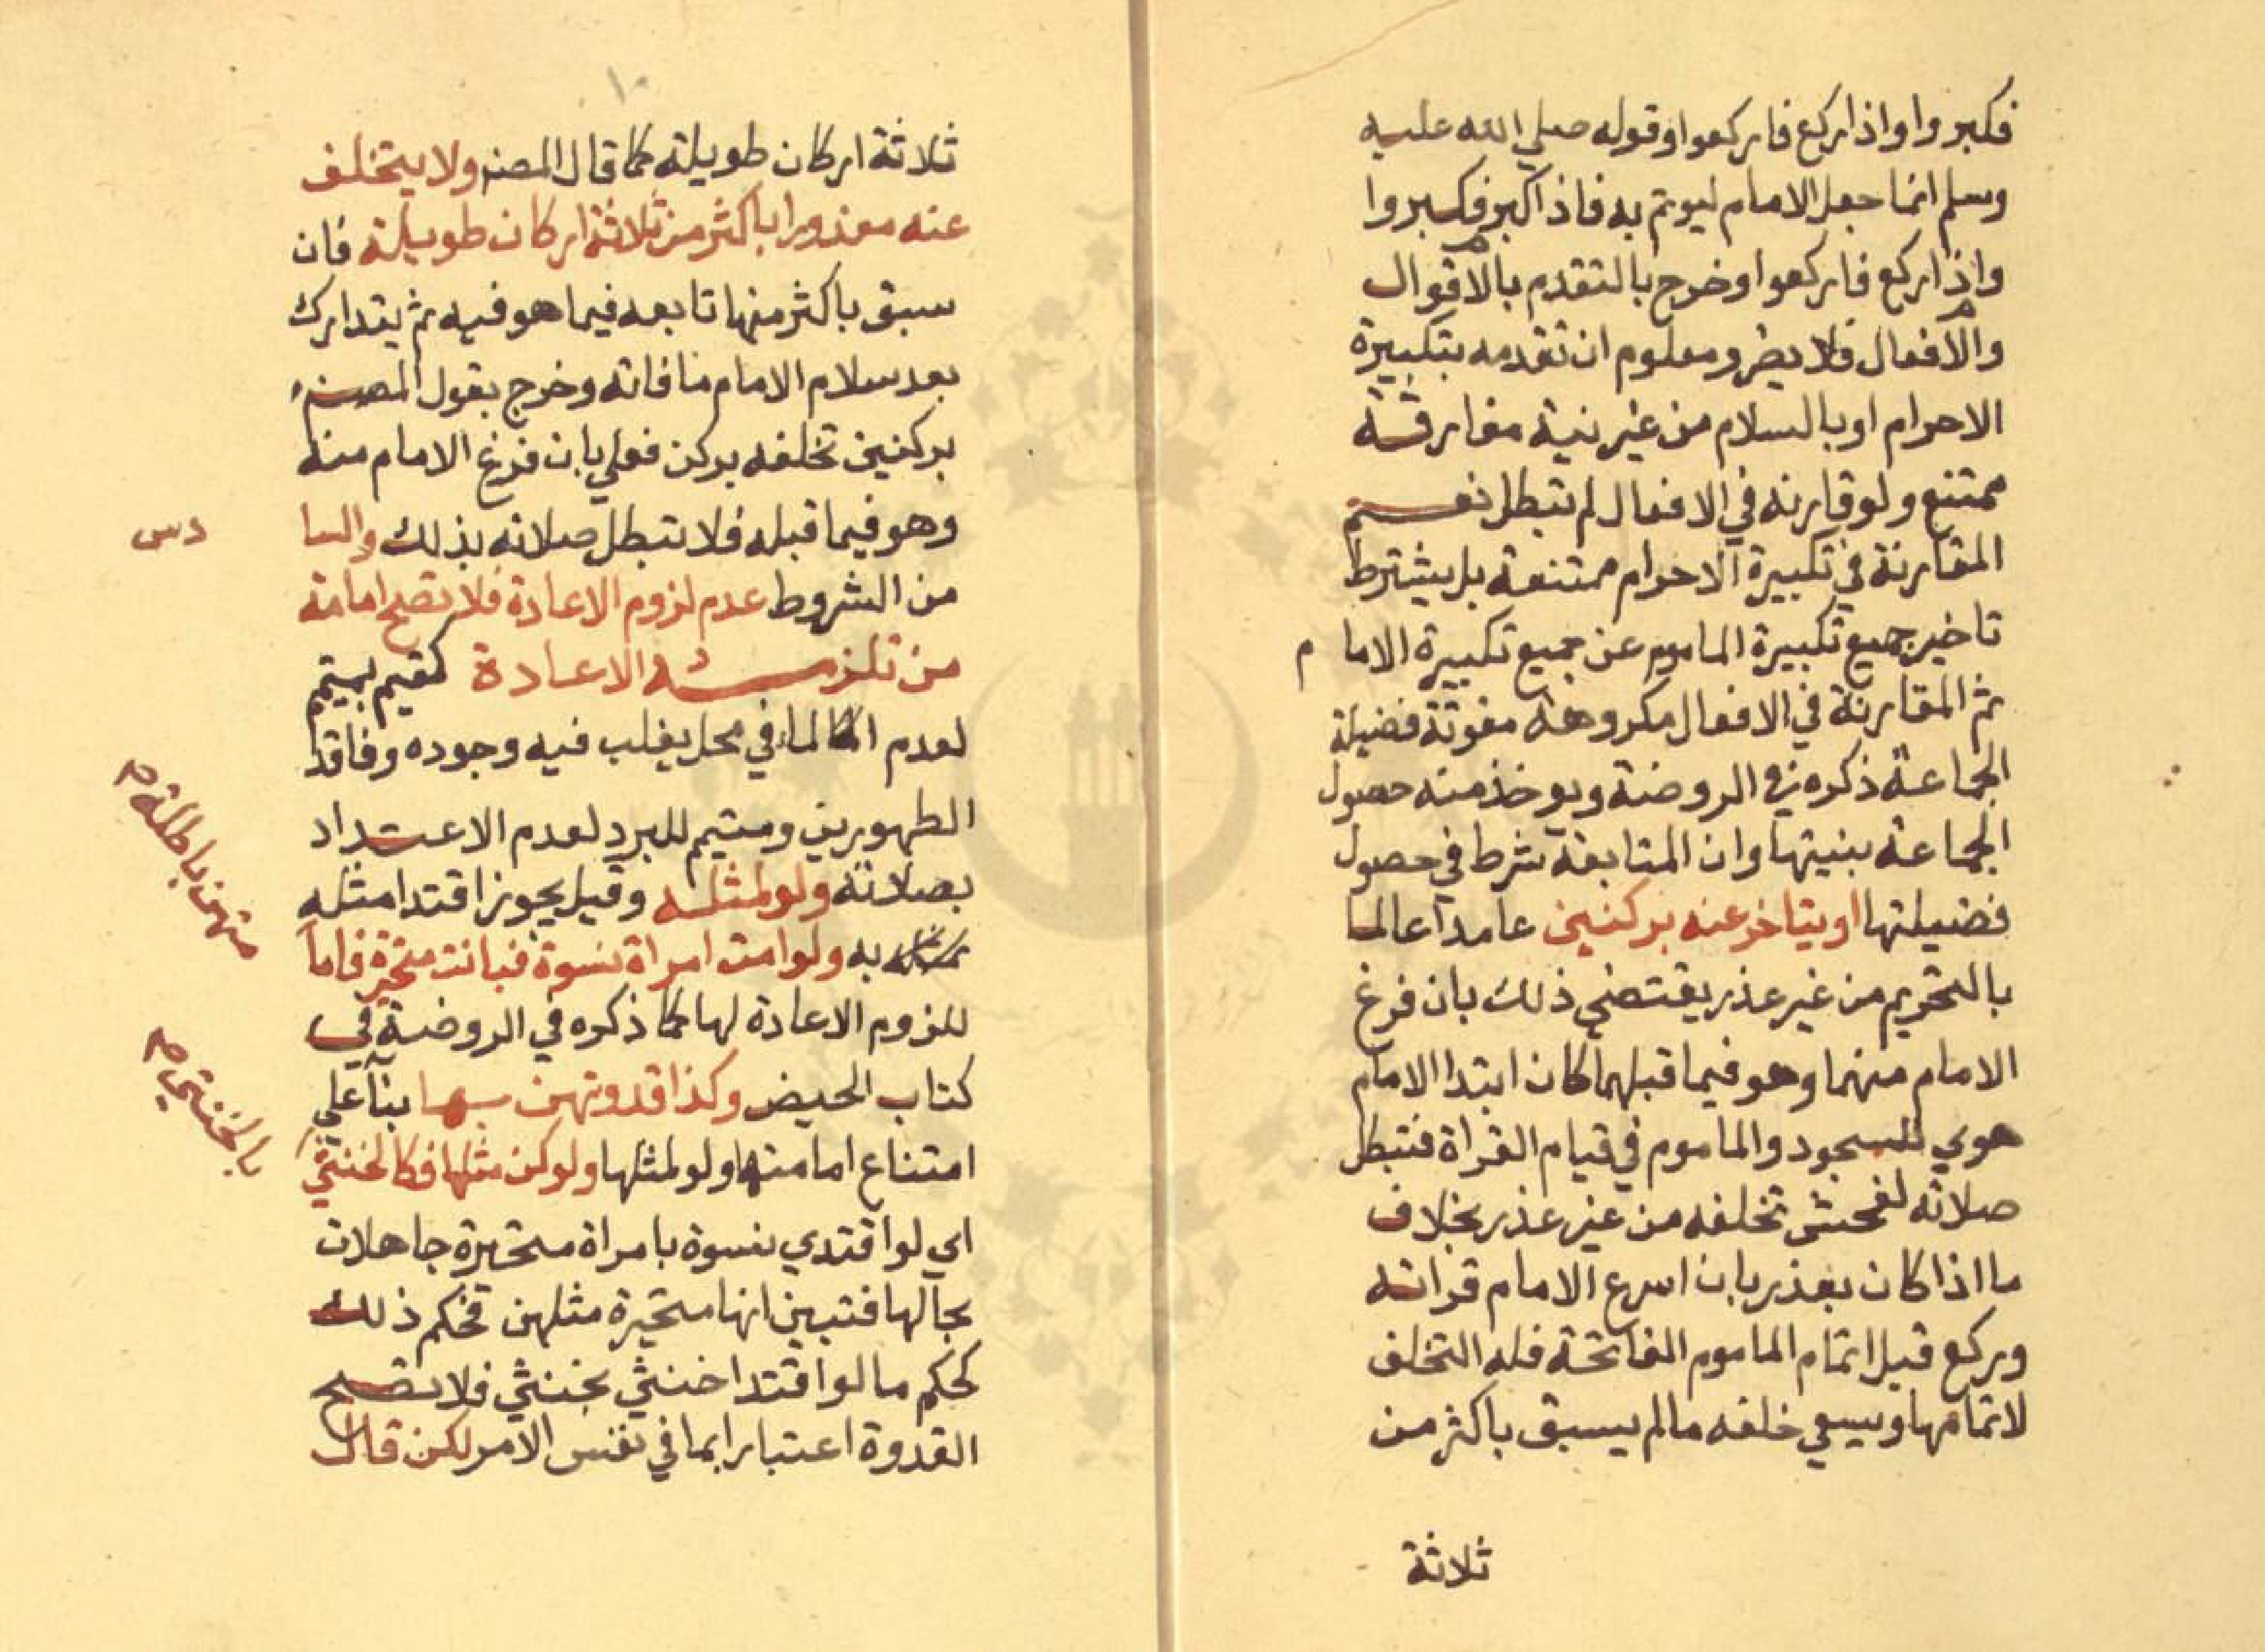 فكبروا واذا ركع فاركعوا وقوله صلي الله عليه
وسلم انما جعل الامام ليوتم به فاذا كبر فكبروا
واذا ركع فاركعوا وخرج بالتقدم بالاقوال
والافعال فلا يضر ومعلوم ان تقدمه بتكبيرة
الاحرام او بالسلام من غير نية مفارقة
ممتنع ولو قارنه في الافعال لم تبطل نعم
المقارنة في تكبيرة الاحرام ممتنعة بل يشترط
تاخير جميع تكبيرة الماموم عن جميع تكبيرة الاما م
ثم المقارنة في الافعال مكروهة مفوتة فضيلة
الجماعة ذكره في الروضة ويوخذ منه حصول
الجماعة بنيتها وان المتابعة شرط في حصول
فضيلتها او يتاخر عنه بركنين عامدا عالما
بالتحريم من غير عذر يقتضي ذلك بان فرغ
الامام منهما وهو فيما قبلهما كان ابتدا الامام
هوي للسجود والماموم في قيام القراة فتبطل
صلاته لفحش تخلفه من غير عذر بخلاف
ما اذا كان بعذر بان اسرع الامام قراته
وركع قبل اتمام الماموم الفاتحة فله التخلف
لاتمامها ويسعي خلفه مالم يسبق باكثر من
ثلاثة
١٠
ثلاثة اركان طويلة كما قال المصنف ولا يتخلف
عنه معذورا باكثر من ثلاثة اركان طويلة فان
سبق باكثر منها تابعه فيما هو فيه ثم يتدارك
بعد سلام الامام ما فاته وخرج بقول المصنف
بركنين تخلفه بركن فعلي بان فرغ الامام منه
وهو فيما قبله فلا تبطل صلاته بذلك والسا
دس
من الشروط عدم لزوم الاعادة فلا تصح امامة
من تلزمه الاعادة كمقيم بتيمم
لعدم الماء في محل يغلب فيه وجوده وفاقد
الطهورين ومتيمم للبرد لعدم الاعتداد
بصلاته ولو لمثله وقيل يجوز اقتدا مثله
به ولو امت امراة نسوة فبانت متحيرة فاما
متهن باطلة صح
للزوم الاعادة لها كما ذكره في الروضة في
كتاب الحيض وكذا قدوتهن بها بنآ علي
امتناع امامتها ولو لمثلها ولو كن مثلها فكالخنثي
بالخنثي صح
اي لو اقتدي نسوة بامراة متحيرة جاهلات
بحالها فتبين انها متحيرة مثلهن فحكم ذلك
كحكم ما لو اقتدا خنثي بخنثي فلا تصح
القدوة اعتبارا بما في نفس الامر لكن قال